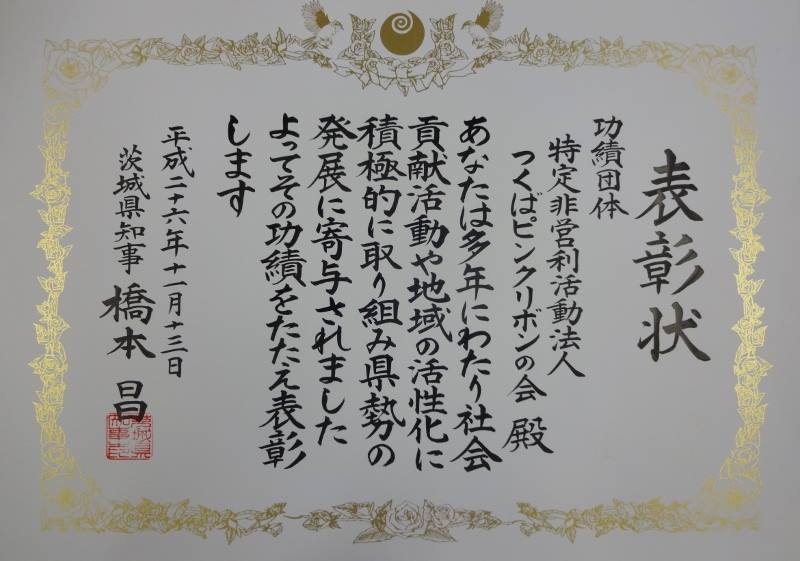 表彰状
功績団体
特定非営利活動法人
つくばピンクリボンの会 殿
あなたは多年にわたり社会
貢献活動や地域の活性化に
積極的に取り組み県勢の
発展に寄与されました
よってその功績をたたえ表彰
します
平成二十六年十一月十三日
茨城県知事 橋本 昌